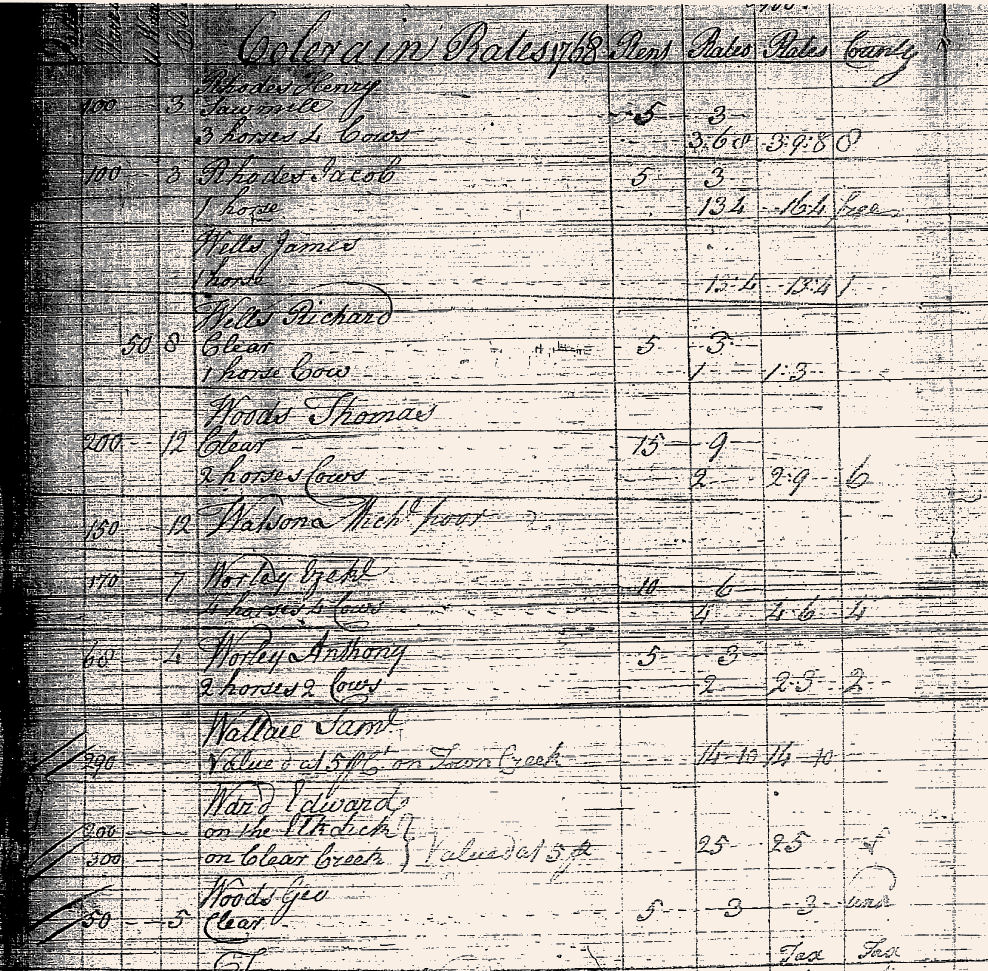 Colerain Rates 1768 Rens Rates Rates County
Rhodes Henry
100 3 Sawmill 5 3
3 horses 4 Cows 3.6.8 3.9.8 8
100 3 Rhodes Jacob 5 3
1 horse 13 4 16.4 free
Wells James
1 horse 13.4 13.4 1
Wells Richard
50 8 Clear 5 3
1 horse Cow 1 1.3
Woods Thomas
200 12 Clear 15 9
2 horses Cows 2 2.9 6
150 12 Watsona Michl poor
170 7 Worley Ezekl 10 6
4 horses 4 Cows 4 4.6 4
68 4 Worley Anthony 5 3
2 horses 2 Cows 2 2.3 2
Wallace Saml
290 Valued at 5 on Town Creek 14-10 14-10
Ward Edward
200 on the Elk
300 on Clear Creek } Valued at 5 25 25
Woods Geo
50 5 Clear 5 3 3
Tax Tax